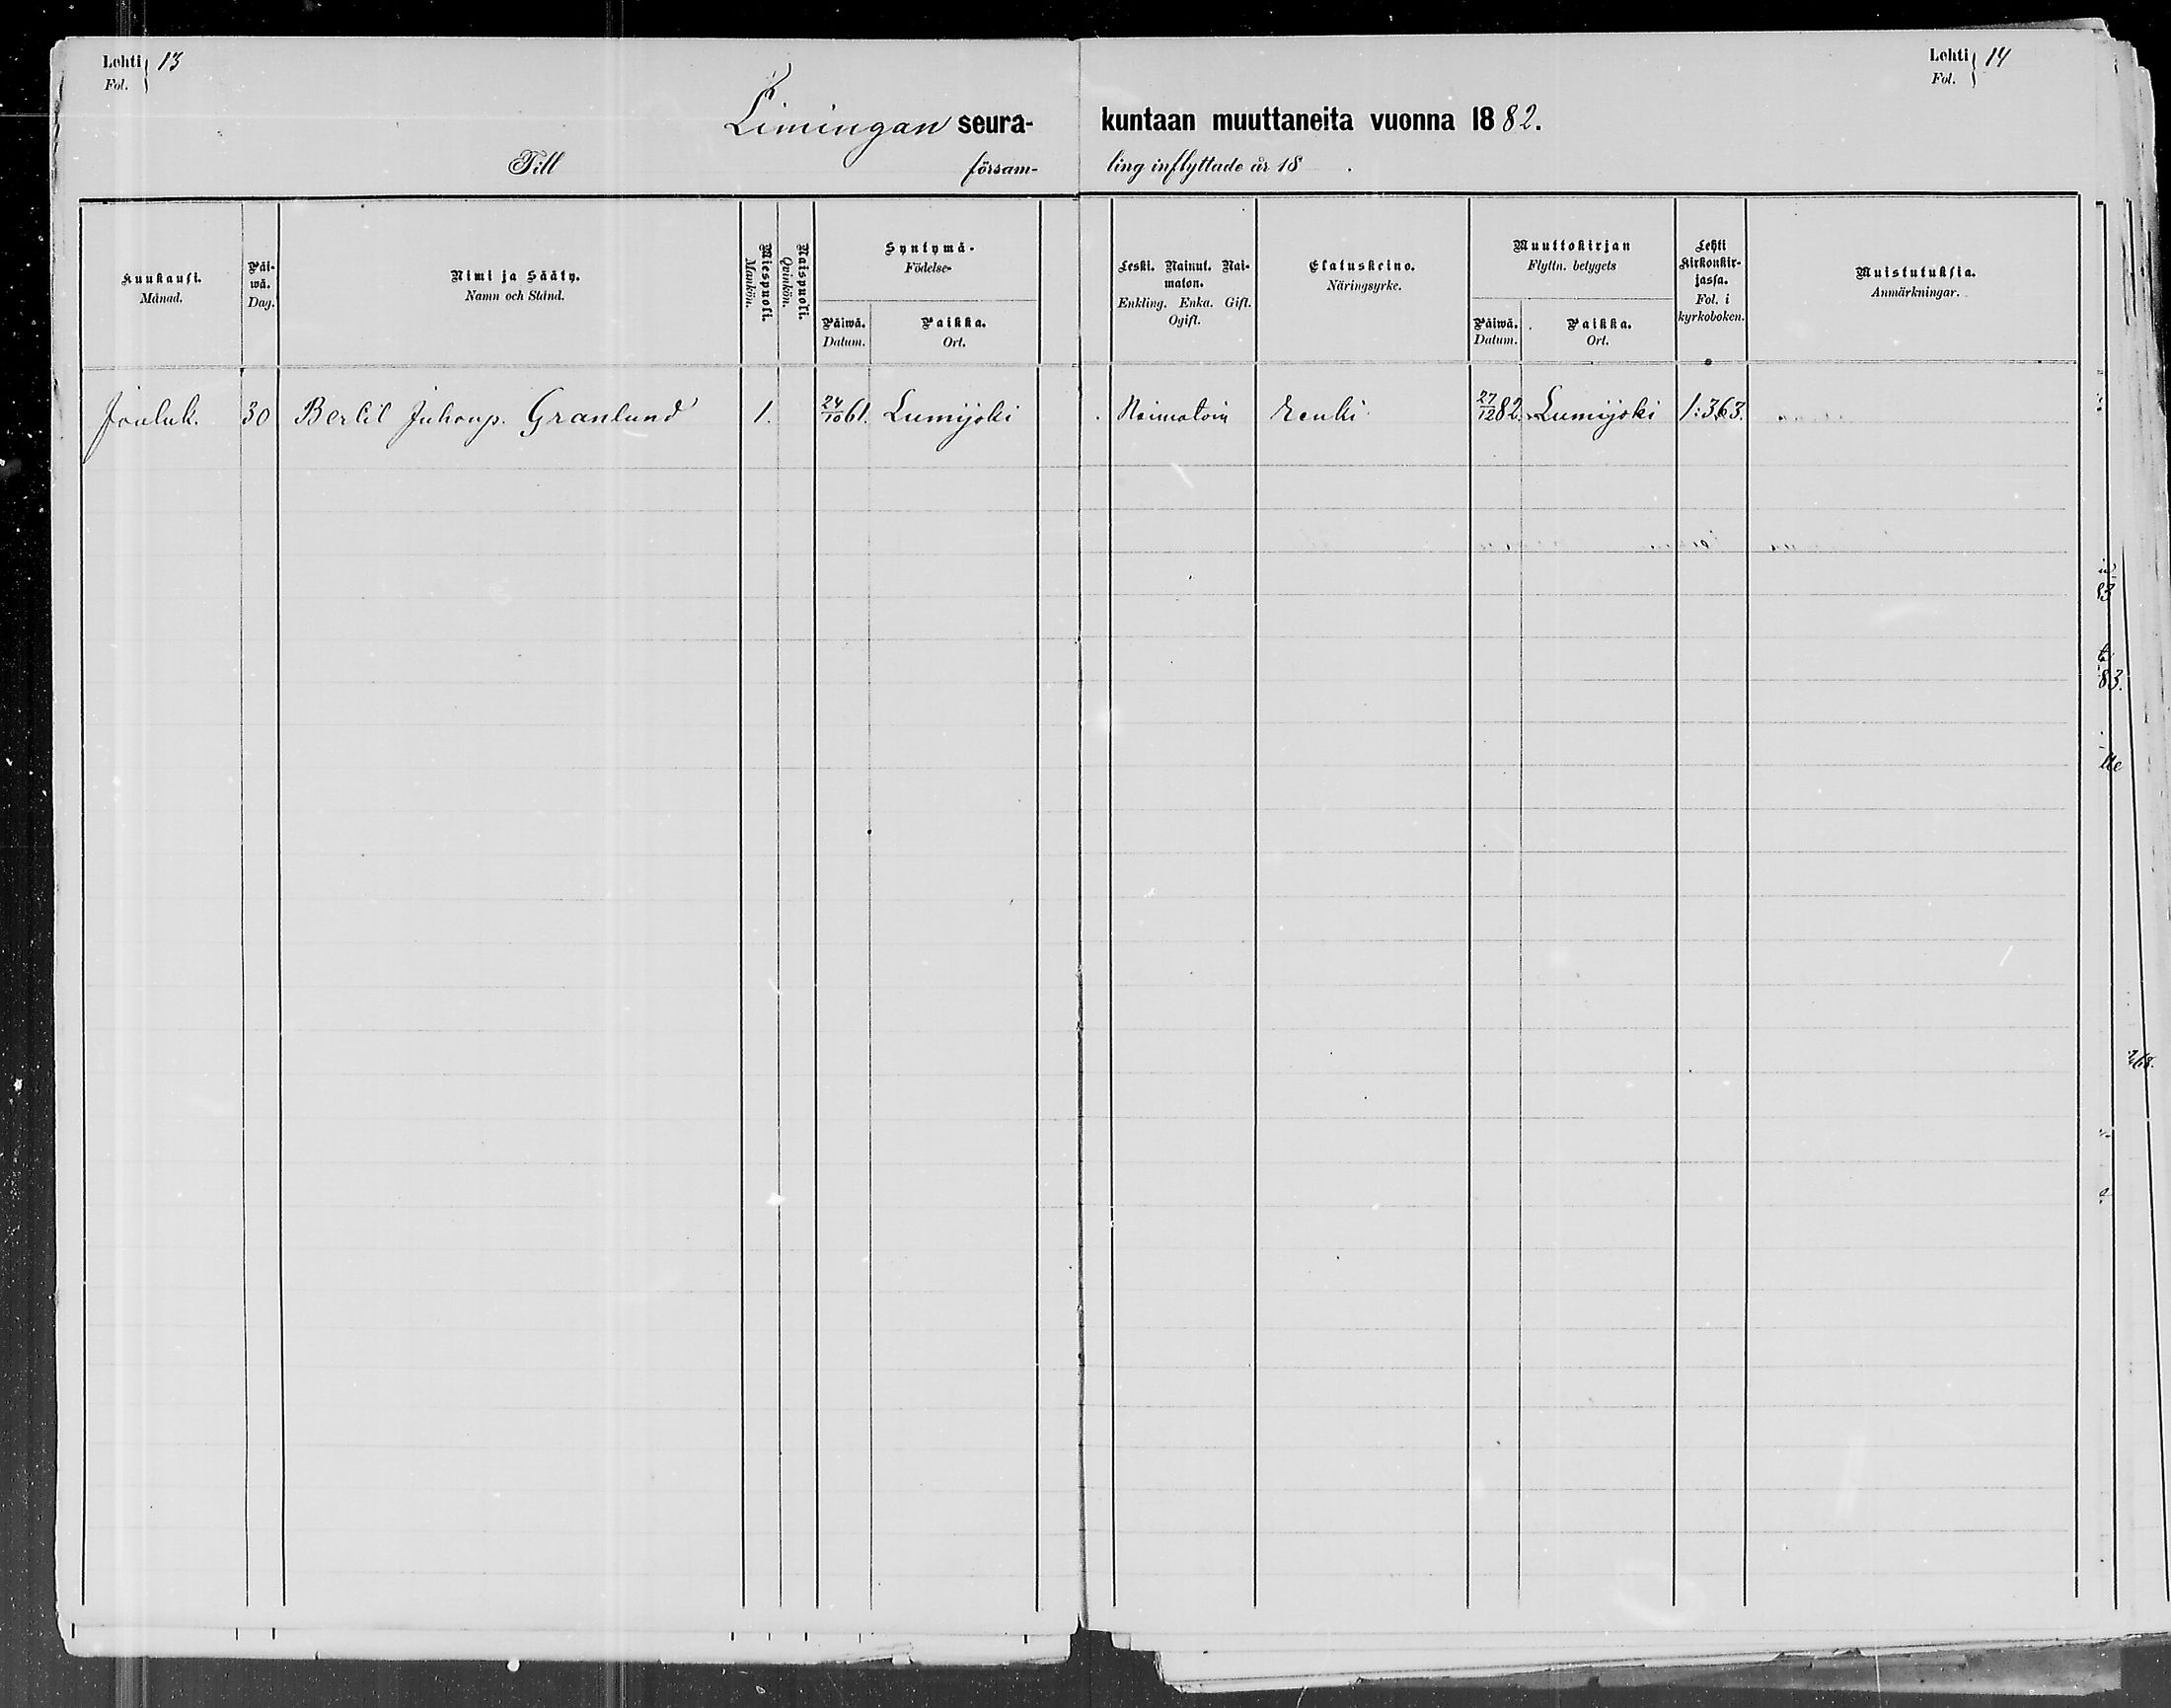 Lehti 13
Fol.
Lehti 14
Fol.
Limingan seura- kuntaan muuttaneita vuonna 1882.
Till försam- ling inflyttade år 18 .
Kuukausi.
Månad.
Päi-
wä.
Dag.
Nimi ja Sääty.
Namn och Stånd.
Miespuoli.
Mankön.
Naispuoli.
Qvinkön.
Syntymä-
Födelse-
Päiwä.
Datum.
Paikka.
Ort.
Leski. Nainut. Nai-
maton.
Enkling. Enka. Gift.
Ogift.
Elatuskeino.
Näringsyrke.
Muuttokirjan
Flyttn. betygets
Päiwä.
Datum.
Paikka.
Ort.
Lehti
Kirkonkir-
jassa.
Fol. i
kyrkoboken.
Muistutuksia.
Anmärkningar.
Jouluk. 30 Bertil Juhonp. Granlund 1. 24/10 61. Lumijoki Naimatoin Renki 27/12 82. Lumijoki 1:363.